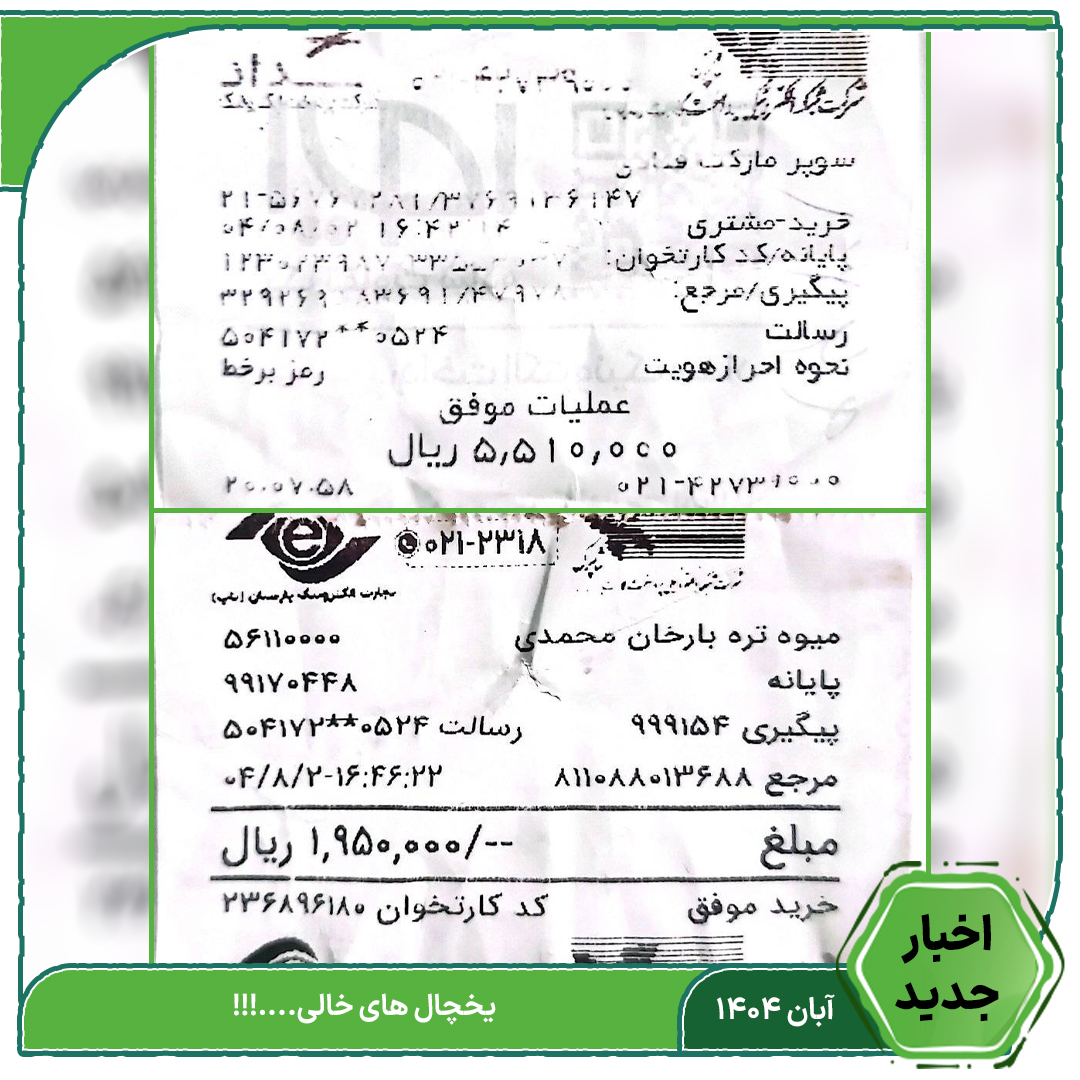 سوپر مارکت
خرید-مشتری
۰۴/۰۸/۰۲ ۱۶:۴۲:۱۴
پایانه/کد کارتخوان:
پیگیری/مرجع:
رسالت ۵۰۴۱۷۲**۰۵۲۴
نحوه احرازهویت رمز برخط
عملیات موفق
۵,۵۱۰,۰۰۰ ریال
۲۰.۰۷.۵۸
۰۲۱-۲۳۱۸
تجارت الکترونیک پارسیان (تاپ)
میوه تره بارخان محمدی ۵۶۱۱۰۰۰۰
پایانه ۹۹۱۷۰۴۴۸
پیگیری ۹۹۹۱۵۴ رسالت ۵۰۴۱۷۲**۰۵۲۴
مرجع ۸۱۱۰۸۸۰۱۳۶۸۸ ۰۴/۸/۲-۱۶:۴۶:۲۲
مبلغ ۱,۹۵۰,۰۰۰/-- ریال
خرید موفق کد کارتخوان ۲۳۶۸۹۶۱۸۰
اخبار
جدید
آبان ۱۴۰۴
یخچال های خالی....!!!